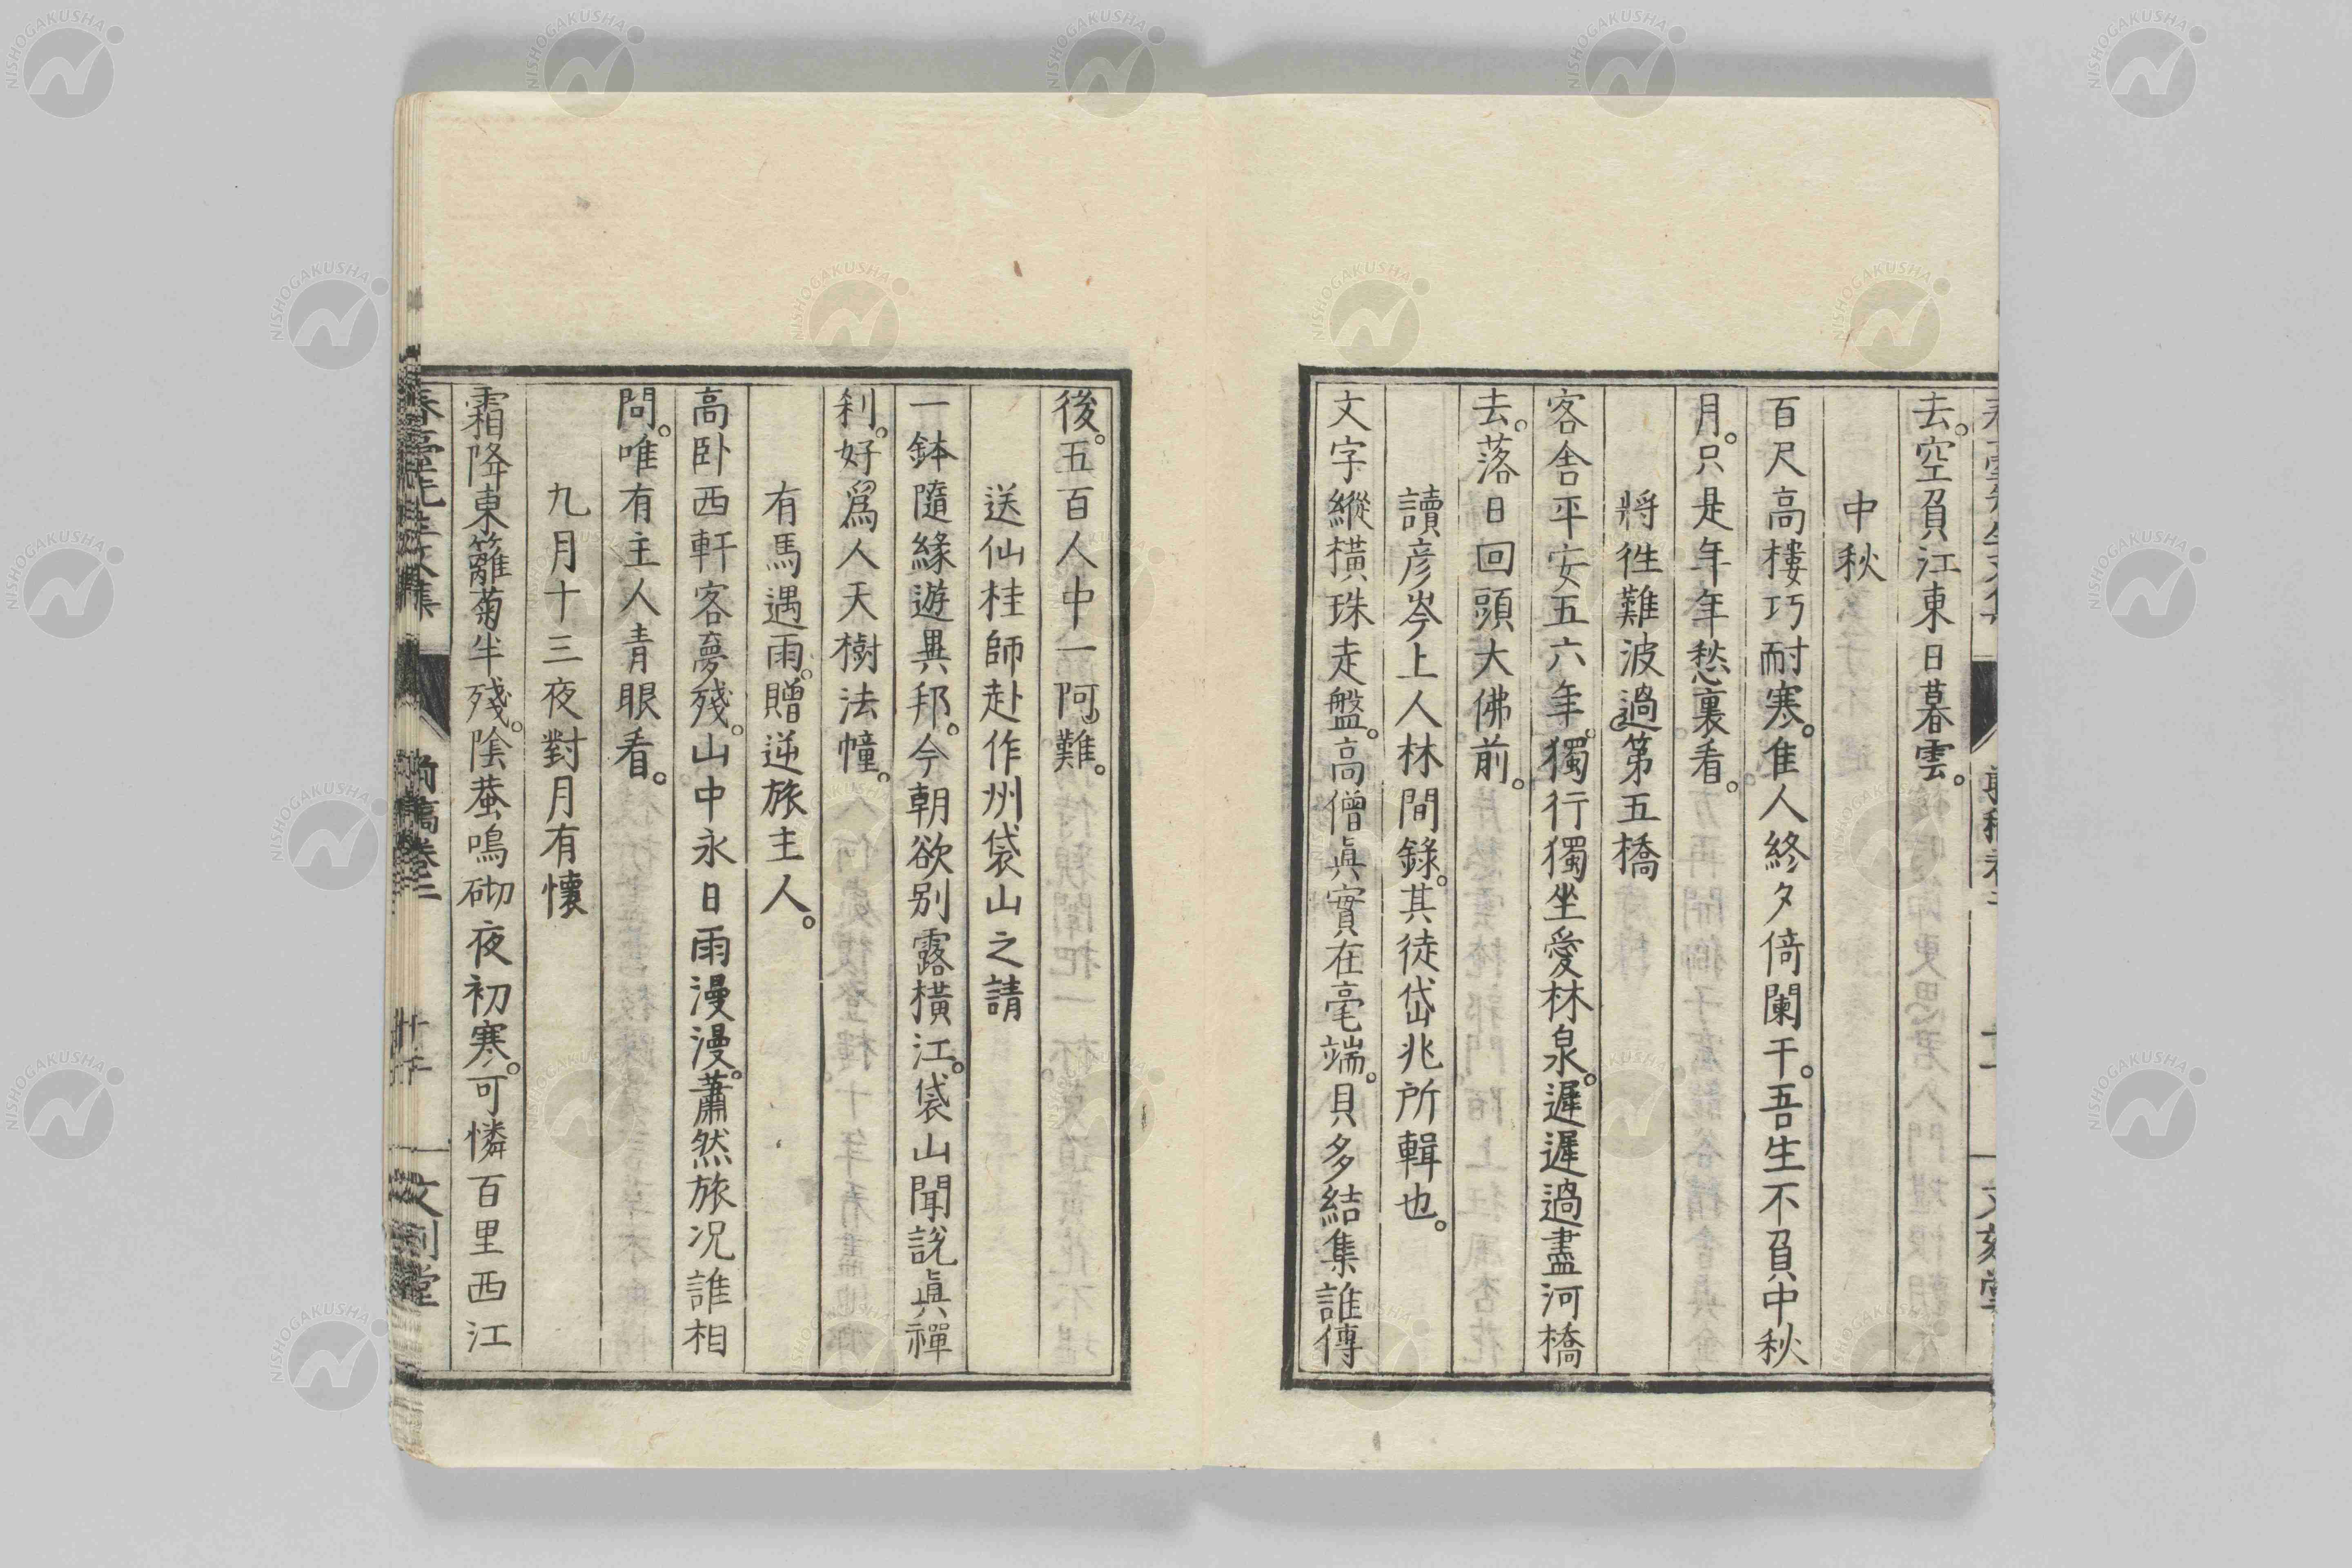 去。空負江東日暮雲。
中秋
百尺高樓巧耐寒。隹人終夕倚闌干。吾生不負中秋
月。只是年年愁裏看。
將徃難波過第五橋
客舎平安五六年。獨行獨坐愛林泉。遲遲過盡河橋
去。落日回頭大佛前。
讀彦岑上人林間錄。其徒岱兆所輯也。
文字縱橫珠走盤。高僧眞實在毫端。貝多結集誰傳
後。五百人中一阿難。
送仙桂師赴作州袋山之請
一鉢隨緣遊異邦。今朝欲别露橫江。袋山聞說眞禪
刹。好爲人天樹法幢。
有馬遇雨。贈逆旅主人。
高卧西軒客夢殘。山中永日雨漫漫。蕭然旅况誰相
問。唯有主人青眼看。
九月十三夜對月有懷
霜降東籬菊半殘。陰蛬鳴砌夜初寒。可憐百里西江
春臺先生文集
前稿卷三
NISHOGAKUSHA